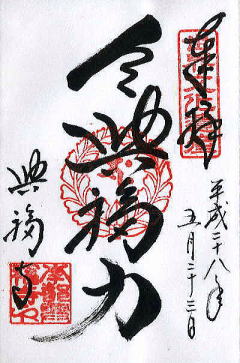 奉拝
平成二十八年
五月二十三日
令興福力
興福寺